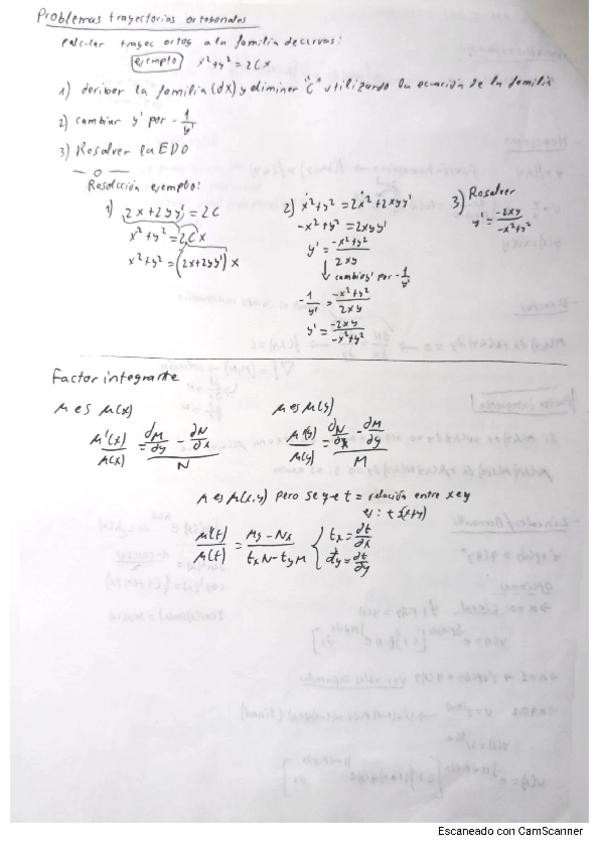 Problemas trayectorias ortogonales
calcular trayec ortog a la familia de curvas:
ejemplo x²+y²=2Cx
1) derivar la familia (dx) y eliminar "C" utilizando la ecuación de la familia
2) cambiar y' por -1/y'
3) Resolver la EDO
—o—
Resolución ejemplo:
1) 2x+2yy'=2C
x²+y²=2Cx
x²+y²=(2x+2yy')x
2) x²+y²=2x²+2xyy'
-x²+y²=2xyy'
y'=(-x²+y²)/(2xy)
↓ cambio y' por -1/y'
-1/y'=(-x²+y²)/(2xy)
y'=(-2xy)/(-x²+y²)
3) Resolver
y'=(-2xy)/(-x²+y²)
Factor integrante
μ es μ(x)
μ'(x)/μ(x)=(∂M/∂y-∂N/∂x)/N
μ es μ(y)
μ'(y)/μ(y)=(∂N/∂x-∂M/∂y)/M
μ es μ(x,y) pero se que t = relación entre x e y
μ'(t)/μ(t)=(My-Nx)/(txN-tyM)
tx=∂t/∂x
ty=∂t/∂y
Escaneado con CamScanner